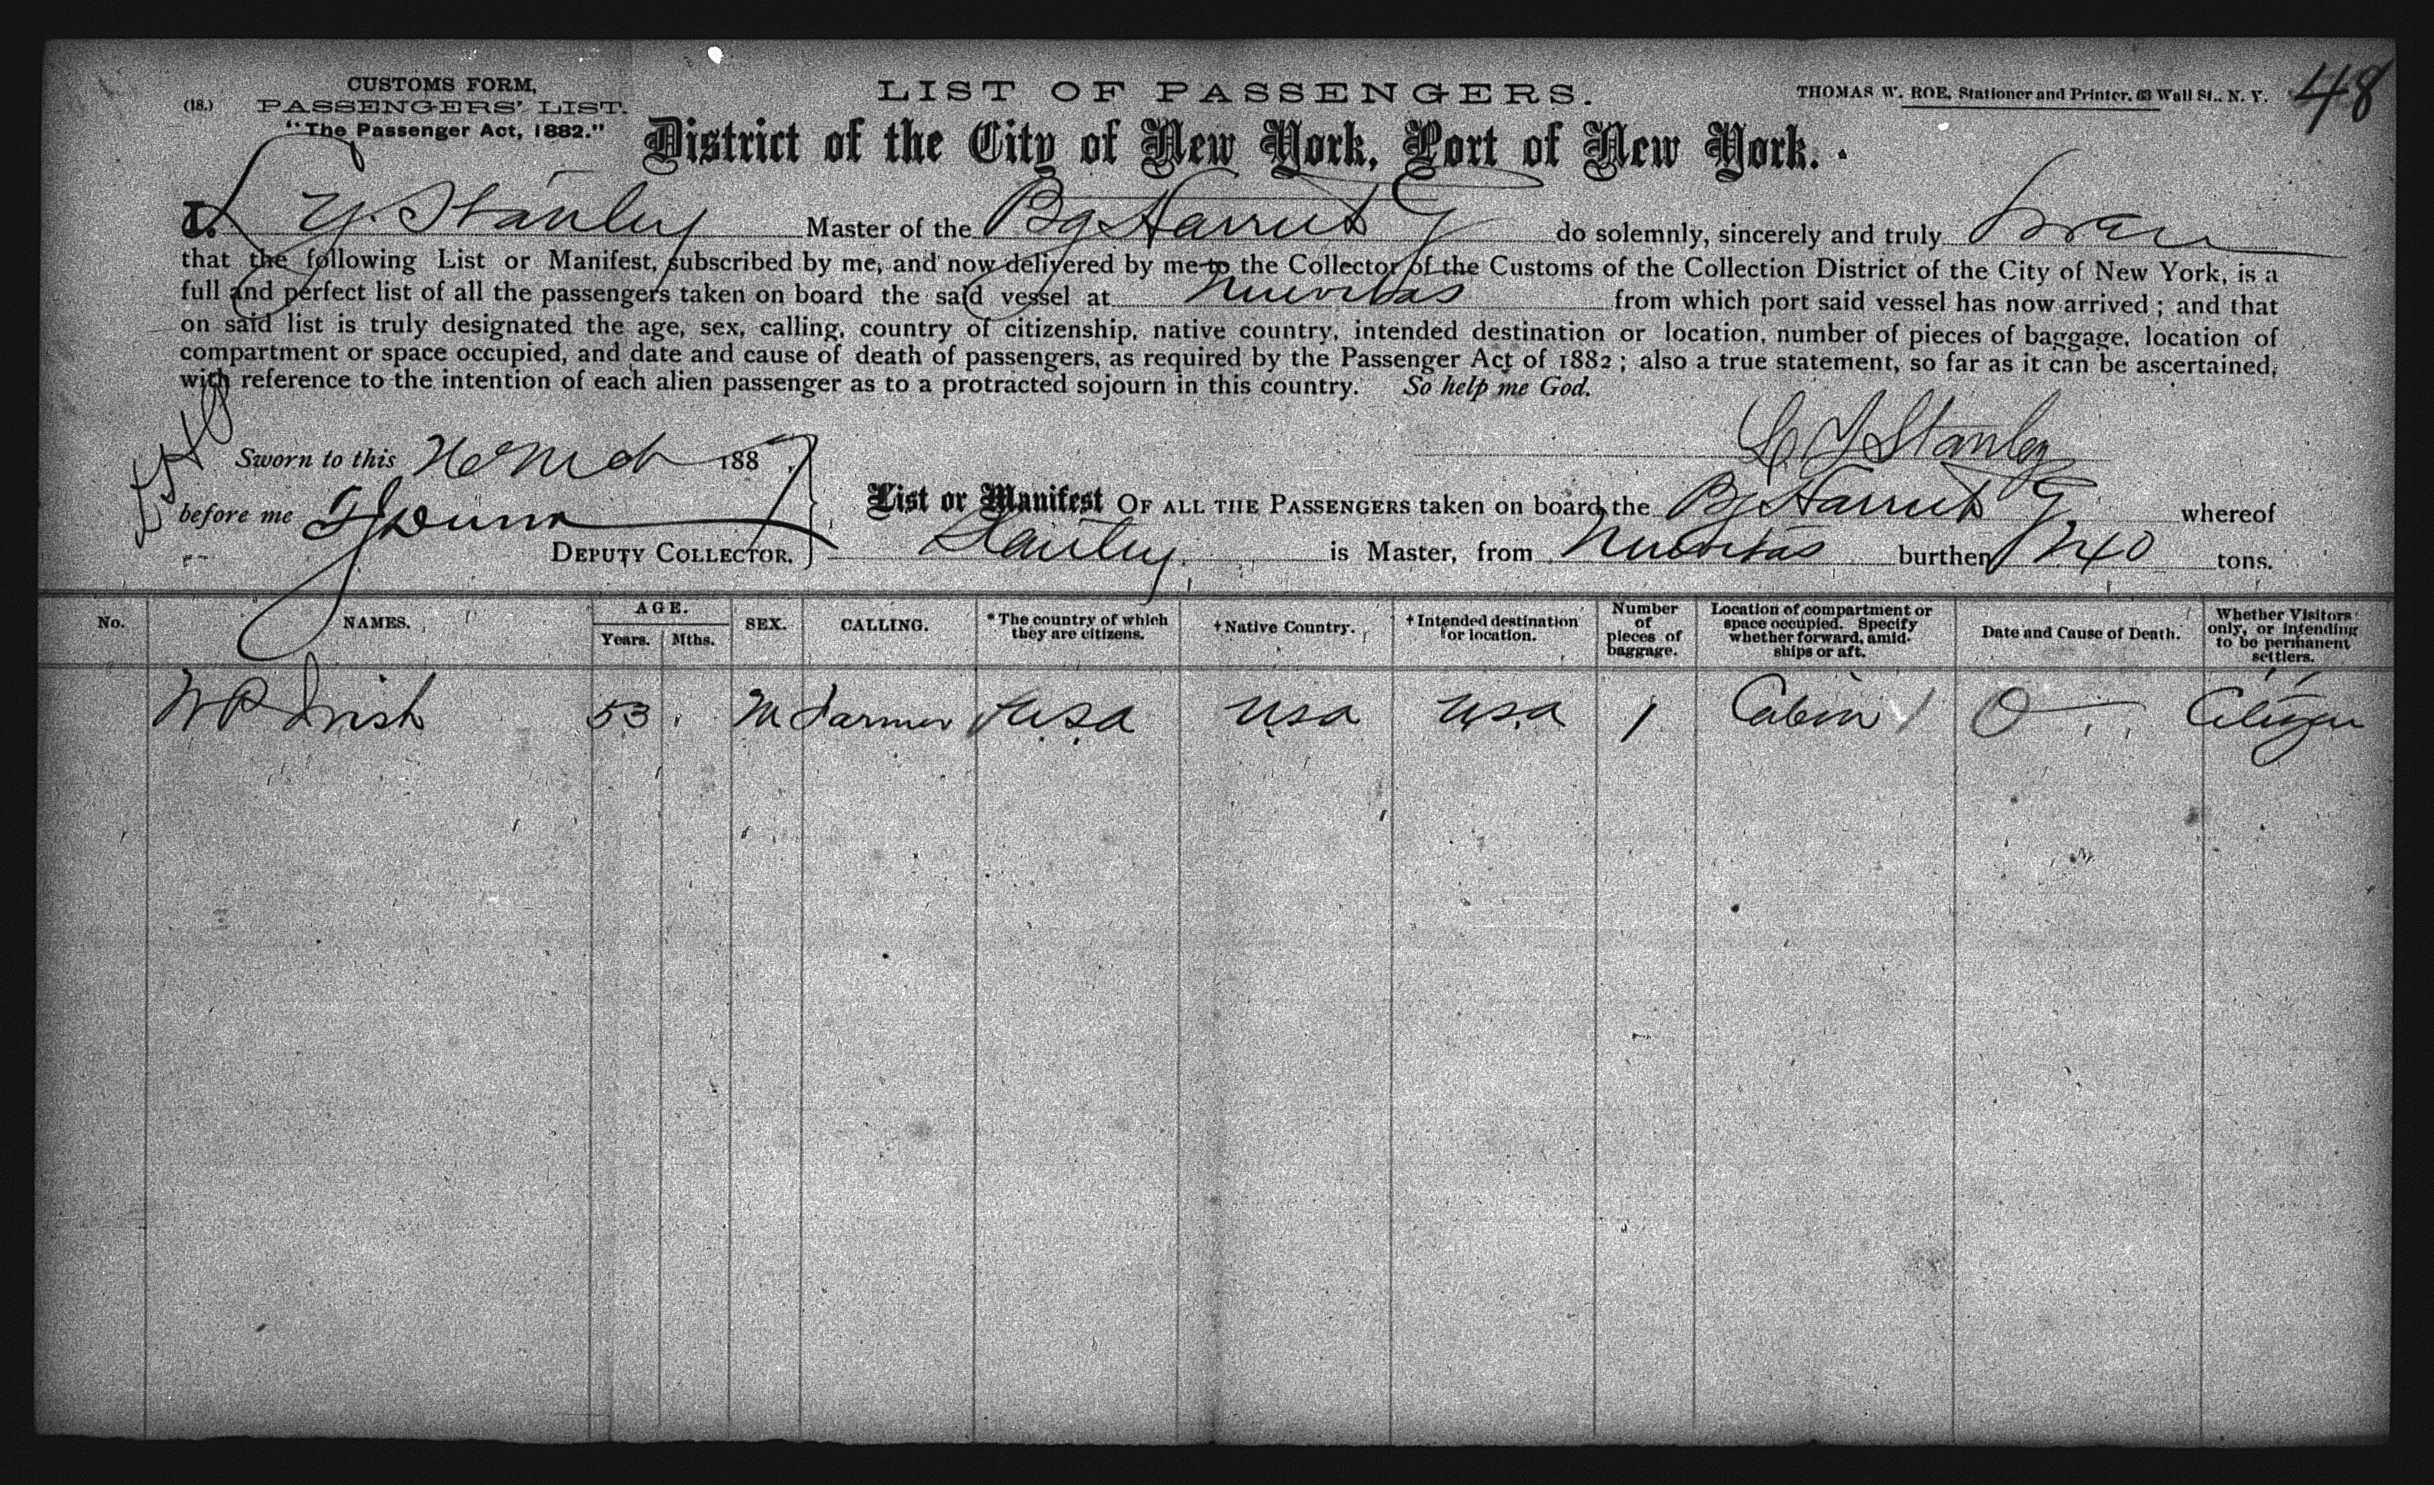 48
CUSTOMS FORM,
(18.) PASSENGERS' LIST.
"The Passenger Act, 1882."
LIST OF PASSENGERS.
THOMAS W. ROE, Stationer and Printer, 63 Wall St., N. Y.
District of the City of New York, Port of New York.
I. Stanley Master of the Bg Harriet G do solemnly, sincerely and truly Swear
that the following List or Manifest, subscribed by me, and now delivered by me to the Collector of the Customs of the Collection District of the City of New York, is a
full and perfect list of all the passengers taken on board the said vessel at Nuevitas from which port said vessel has now arrived; and that
on said list is truly designated the age, sex, calling, country of citizenship, native country, intended destination or location, number of pieces of baggage, location of
compartment or space occupied, and date and cause of death of passengers, as required by the Passenger Act of 1882; also a true statement, so far as it can be ascertained,
with reference to the intention of each alien passenger as to a protracted sojourn in this country. So help me God.
Stanley
Sworn to this Mch 1887
before me Dunn
DEPUTY COLLECTOR.
List or Manifest OF ALL THE PASSENGERS taken on board the Bg Harriet G whereof
Stanley is Master, from Nuevitas burthen 240 tons.
No. NAMES. AGE. Years. Mths. SEX. CALLING. *The country of which they are citizens. †Native Country. †Intended destination or location. Number of pieces of baggage. Location of compartment or space occupied. Specify whether forward, amidships or aft. Date and Cause of Death. Whether Visitors only, or intending to be permanent settlers.
W R Irish 53 M Farmer USA USA USA 1 Cabin O Citizen